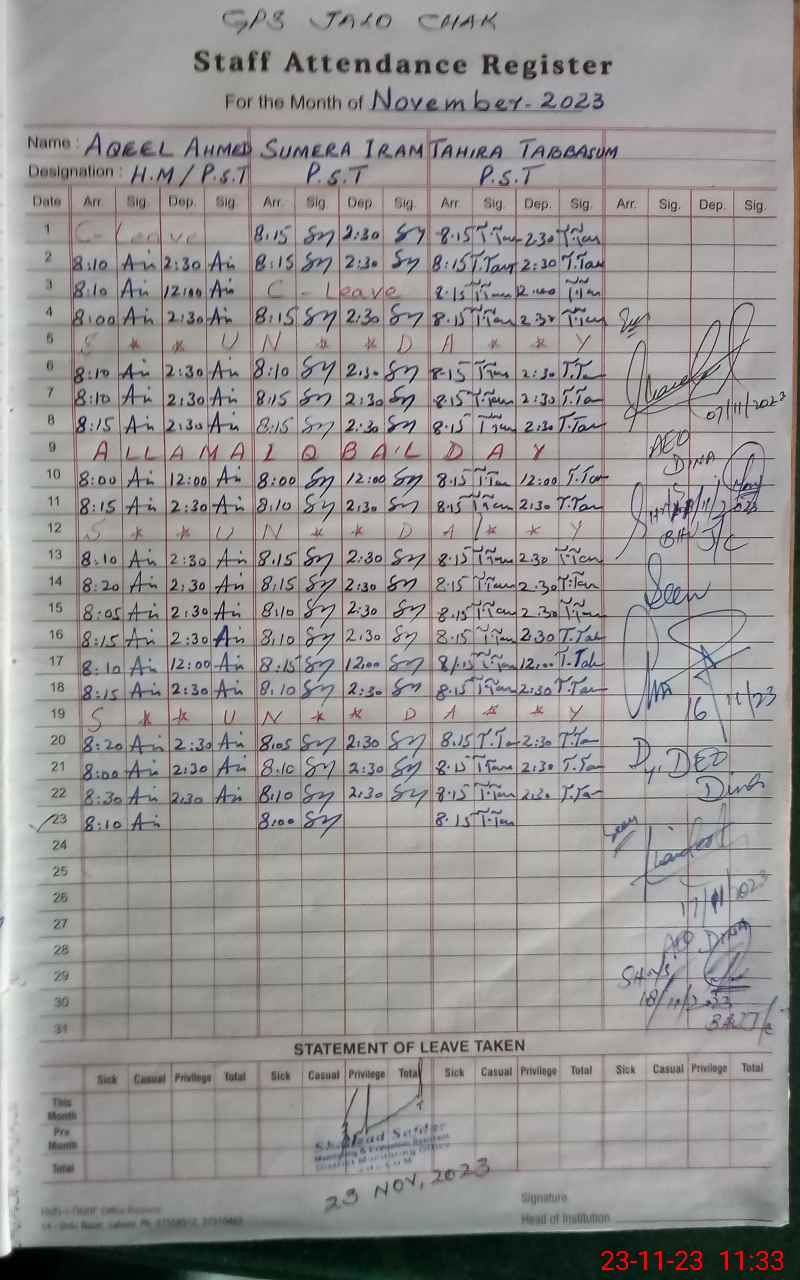 GPS JALO CHAK
Staff Attendance Register
For the Month of November-2023
Name : AQEEL AHMED SUMERA IRAM TAHIRA TABBASUM
Designation : H.M/P.S.T P.S.T P.S.T
Date Arr. Sig. Dep. Sig. Arr. Sig Dep. Sig. Arr. Sig. Dep. Sig. Arr. Sig. Dep. Sig.
1 C- Leave 8:15 Sy 2:30 Sy 8.15 T.Tan 2.30 T.Tan
2 8:10 An 2:30 An 8:15 Sy 2:30 Sy 8:15 T.Tan 2:30 T.Tan
3 8:10 An 12:00 An C - Leave 8.15 T.Tan 12:00 T.Tan
4 8:00 An 2:30 An 8:15 Sy 2:30 Sy 8.15 T.Tan 2:30 T.Tan
5 S * * U N * * D A * * Y
6 8:10 An 2:30 An 8:10 Sy 2:30 Sy 8.15 T.Tan 2:30 T.Tan
7 8:10 An 2:30 An 8:15 Sy 2:30 Sy 8.15 T.Tan 2:30 T.Tan
07/11/2023
8 8:15 An 2:30 An 8:15 Sy 2:30 Sy 8.15 T.Tan 2:30 T.Tan
9 ALLAMA IQBAL DAY
AEO
DINA
10 8:00 An 12:00 An 8:00 Sy 12:00 Sy 8.15 T.Tan 12:00 T.Tan
11 8:15 An 2:30 An 8:10 Sy 2:30 Sy 8:15 T.Tan 2:30 T.Tan
12 S * * U N * * D A * * Y
13 8:10 An 2:30 An 8:15 Sy 2:30 Sy 8.15 T.Tan 2.30 T.Tan
14 8:20 An 2:30 An 8:15 Sy 2:30 Sy 8.15 T.Tan 2.30 T.Tan
Seen
15 8:05 An 2:30 An 8:10 Sy 2:30 Sy 8.15 T.Tan 2.30 T.Tan
16 8:15 An 2:30 An 8:10 Sy 2:30 Sy 8.15 T.Tan 2:30 T.Tab
17 8:10 An 12:00 An 8:15 Sy 12:00 Sy 8.15 T.Tan 12:00 T.Tab
18 8:15 An 2:30 An 8:10 Sy 2:30 Sy 8.15 T.Tan 2:30 T.Tan
16/11/23
19 S * * U N * * D A * * Y
20 8:20 An 2:30 An 8:05 Sy 2:30 Sy 8.15 T.Tan 2:30 T.Tan
21 8:00 An 2:30 An 8:10 Sy 2:30 Sy 8.15 T.Tan 2:30 T.Tan
Dy. DEO
Dina
22 8:30 An 2:30 An 8:10 Sy 2:30 Sy 8.15 T.Tan 2:30 T.Tan
23 8:10 An 8:00 Sy 8.15 T.Tan
24
25
26
17/11/2023
27
28
AEO DINA
29
30
18/11/2023
31
STATEMENT OF LEAVE TAKEN
Sick Casual Privilege Total Sick Casual Privilege Total Sick Casual Privilege Total Sick Casual Privilege Total
This Month
Pre Month
Total
23 NOV, 2023
Signature
Head of Institution
23-11-23 11:33